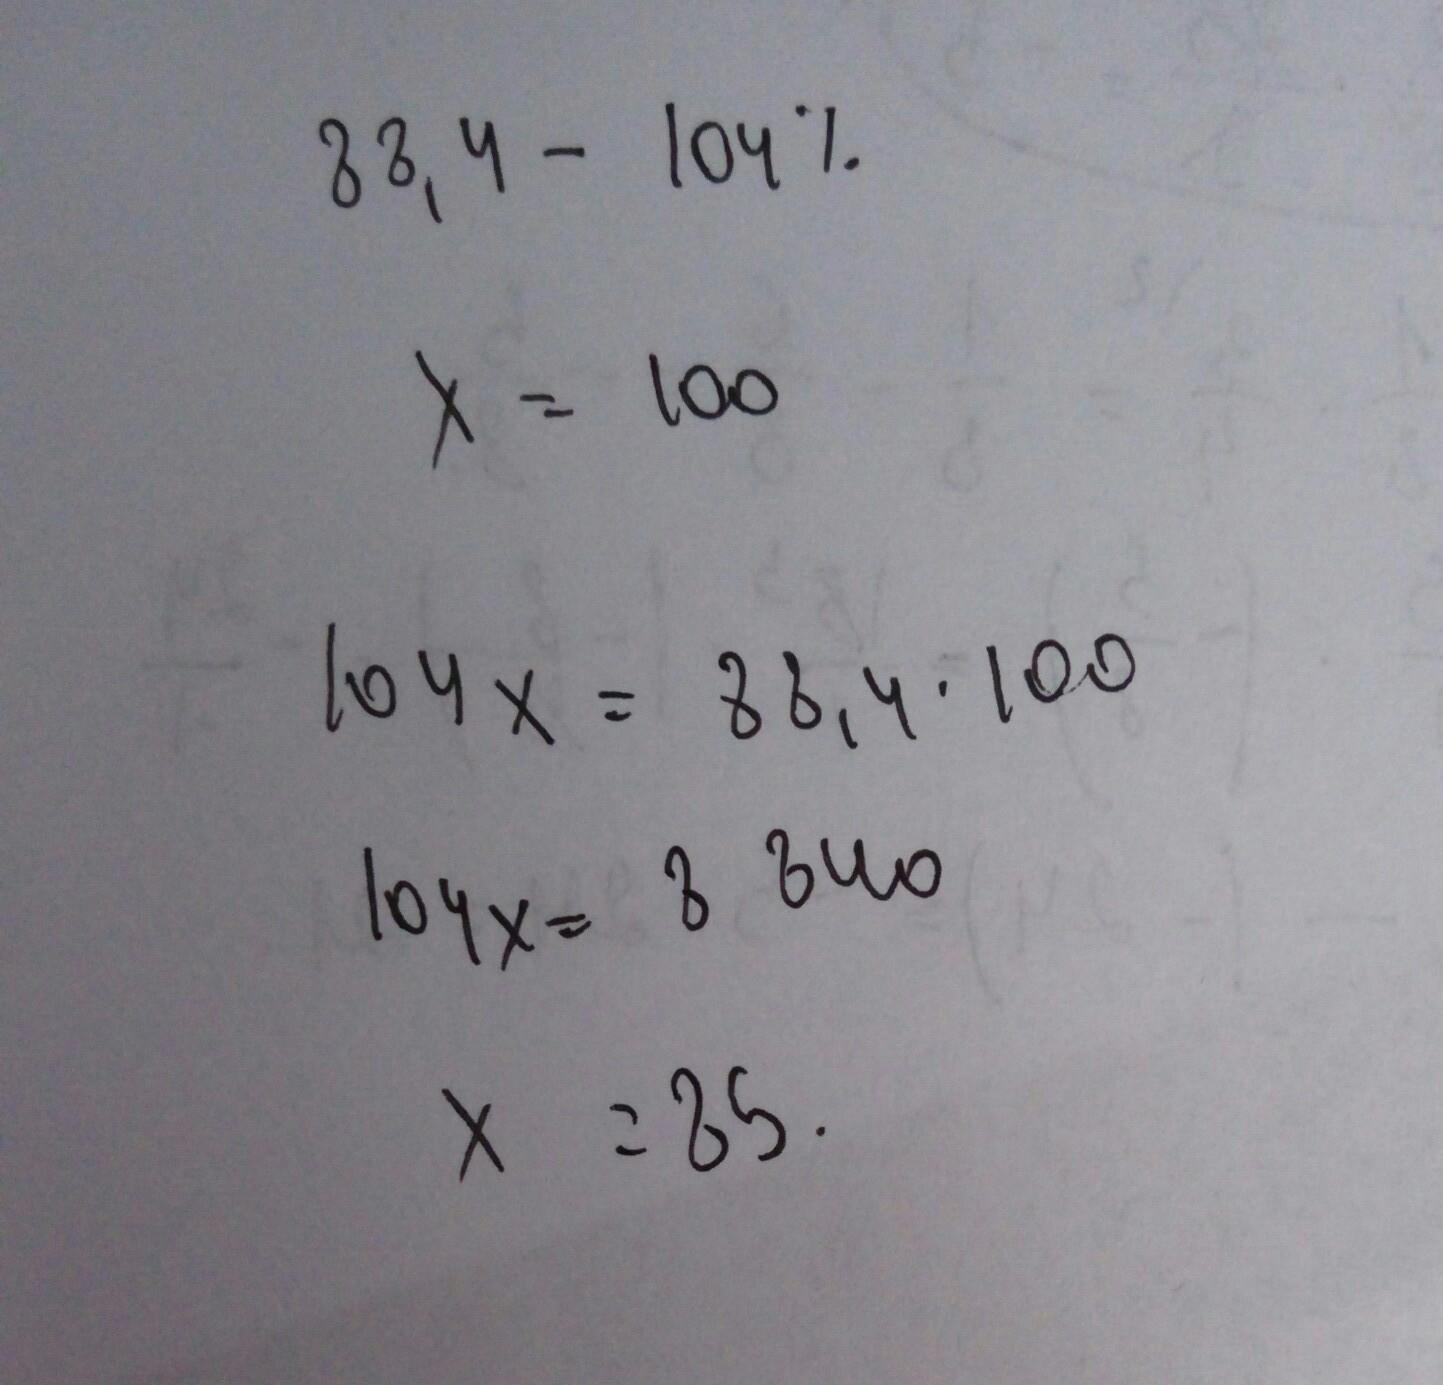 88,4 - 104%
x = 100
104x = 88,4 · 100
104x = 8 840
x = 85.